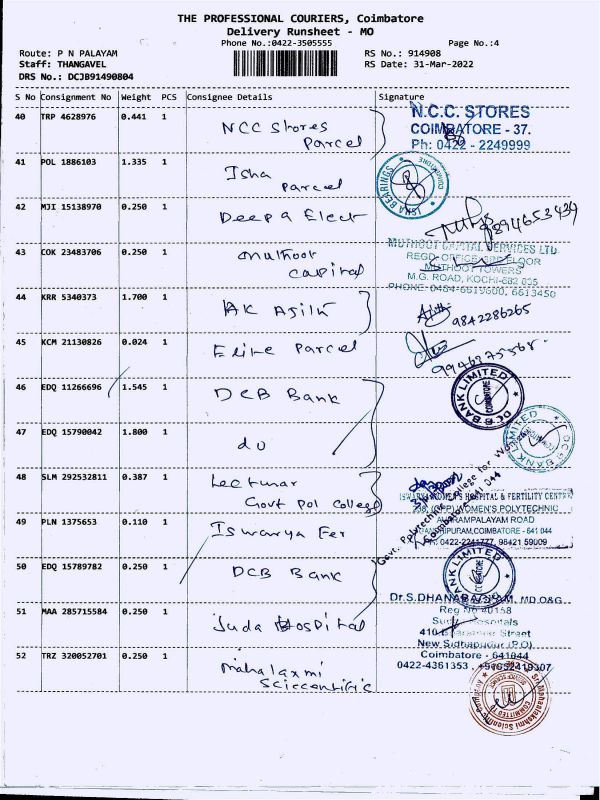 THE PROFESSIONAL COURIERS, Coimbatore
Delivery Runsheet - MO
Phone No.:0422-3505555
Page No.:4
Route: P N PALAYAM
RS No.: 914908
Staff: THANGAVEL
RS Date: 31-Mar-2022
DRS No.: DCJB91490804
S No Consignment No Weight PCS Consignee Details Signature
40 TRP 4628976 0.441 1 NCC Stores
Parcel
N.C.C. STORES
COIMBATORE - 37.
Ph: 0422 - 2249999
41 POL 1886103 1.335 1 Isha
Parcel
ISHA BEARINGS COIMBATORE
42 MJI 15138970 0.250 1 Deepa Elect
9894653439
43 COK 23483706 0.250 1 muthoot
capital
MUTHOOT CAPITAL SERVICES LTD
REGD. OFFICE 3RD FLOOR
MUTHOOT TOWERS
M.G. ROAD, KOCHI-682 035
PHONE: 0484-6619600, 6613450
44 KRR 5340373 1.700 1 AK
9842286265
45 KCM 21130826 0.024 1 Elite Parcel
9946375568
46 EDQ 11266696 1.545 1 DCB Bank
DCB BANK LIMITED COIMBATORE
47 EDQ 15790042 1.800 1 do
DCB BANK LIMITED
48 SLM 292532811 0.387 1 Lecturar
Govt Pol College
Govt. Polytechnic College for
Coimbatore - 641 044
49 PLN 1375653 0.110 1 Iswarya Fer
ISWARYA WOMEN'S HOSPITAL & FERTILITY CENTRE
WOMEN'S POLYTECHNIC
AVARAMPALAYAM ROAD
COIMBATORE - 641 044
0422-2241777, 98421 59009
50 EDQ 15789782 0.250 1 DCB Bank
BANK LIMITED COIMBATORE
51 MAA 285715584 0.250 1 Suda Hospital
Dr.S.DHANABAGYAM, MD.O&G.
Reg No 40158
Hospitals
410 Street
New Sidhapudur (P.O)
Coimbatore - 641044
0422-4361353, +91
52 TRZ 320052701 0.250 1 mahalaxmi
Sciecentific
Sri Mahaalakshmi Scientific